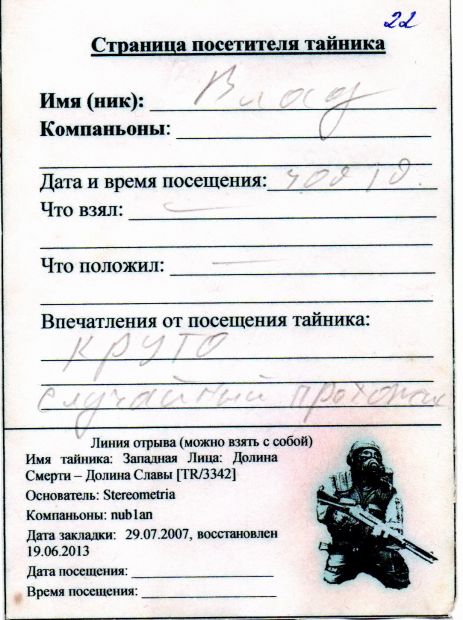 22
Страница посетителя тайника
Имя (ник): Влад
Компаньоны:
Дата и время посещения:
Что взял: —
Что положил: —
Впечатления от посещения тайника:
круто
случайный прохожий
Линия отрыва (можно взять с собой)
Имя тайника: Западная Лица: Долина
Смерти – Долина Славы [TR/3342]
Основатель: Stereometria
Компаньоны: nub1an
Дата закладки: 29.07.2007, восстановлен
19.06.2013
Дата посещения:
Время посещения: